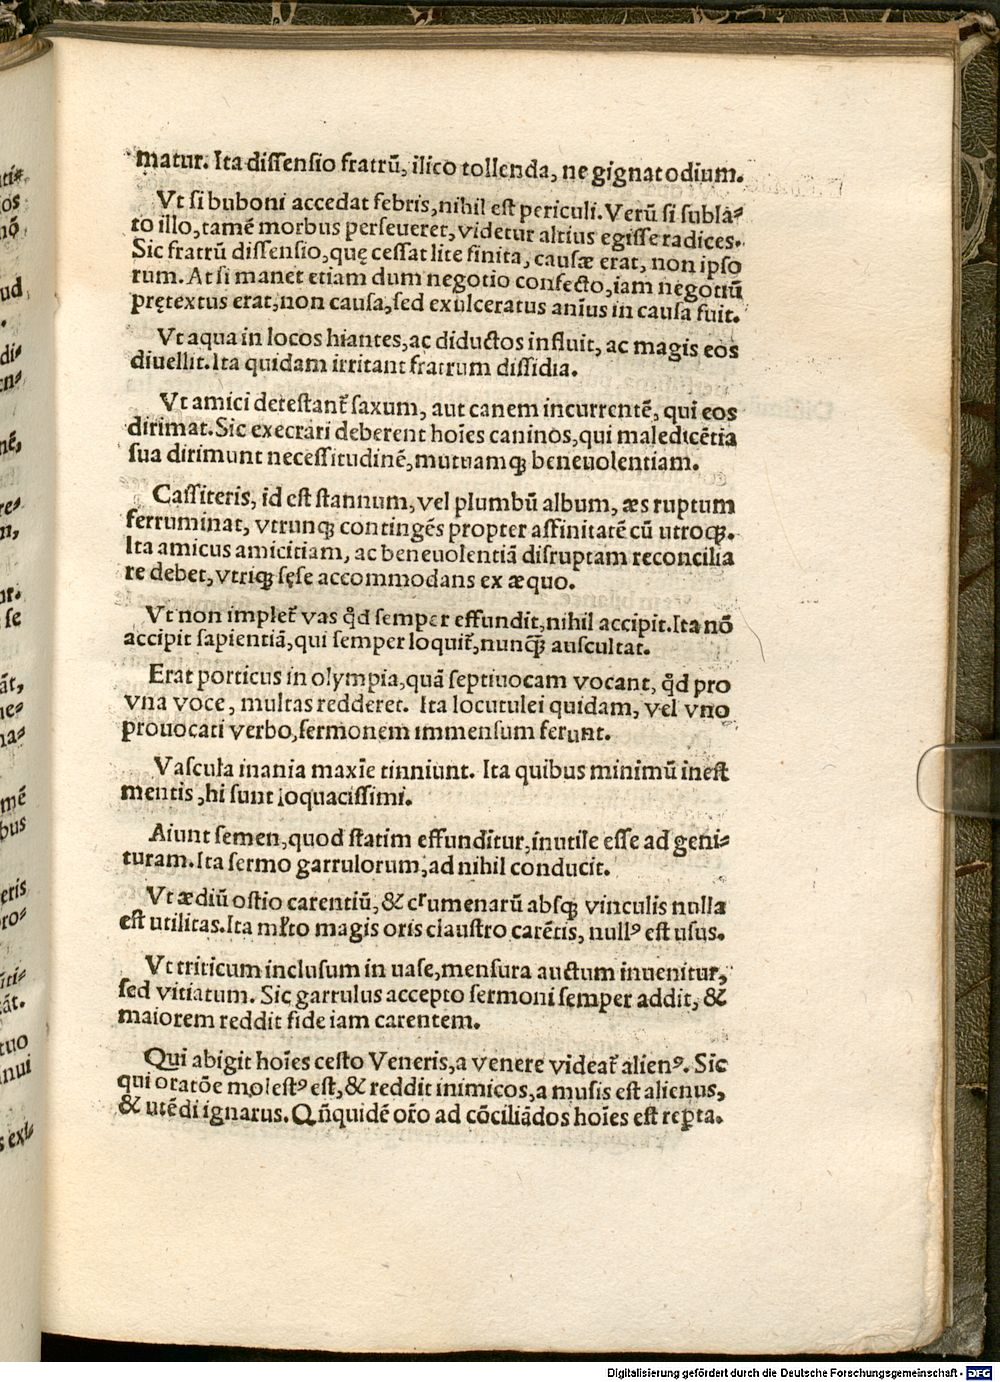 matur. Ita dissensio fratrū, ilico tollenda, ne gignat odium.
Vt si buboni accedat febris, nihil est periculi. Verū si subla⸗
to illo, tamē morbus perseueret, videtur altius egisse radices.
Sic fratrū dissensio, quę cessat lite finita, causæ erat, non ipso
rum. At si manet etiam dum negotio confecto, iam negotiū
prętextus erat, non causa, sed exulceratus anīus in causa fuit.
Vt aqua in locos hiantes, ac diductos influit, ac magis eos
diuellit. Ita quidam irritant fratrum dissidia.
Vt amici detestant᷑ saxum, aut canem incurrentē, qui eos
dirimat. Sic execrari deberent hoīes caninos, qui maledicētia
sua dirimunt necessitudinē, mutuamqꝫ beneuolentiam.
Cassiteris, id est stannum, vel plumbū album, æs ruptum
ferruminat, vtrunqꝫ contingēs propter affinitatē cū utroqꝫ.
Ita amicus amicitiam, ac beneuolentiā disruptam reconcilia
re debet, vtriqꝫ sęse accommodans ex æquo.
Vt non implet᷑ vas qd̄ semper effundit, nihil accipit. Ita nō
accipit sapientiā, qui semper loquit᷑, nunqꝫ̄ auscultat.
Erat porticus in olympia, quā septiuocam vocant, qd̄ pro
vna voce, multas redderet. Ita locutulei quidam, vel vno
prouocati verbo, sermonem immensum ferunt.
Vascula inania maxīe tinniunt. Ita quibus minimū inest
mentis, hi sunt loquacissimi.
Aiunt semen, quod statim effunditur, inutile esse ad geni⸗
turam. Ita sermo garrulorum, ad nihil conducit.
Vt ædiū ostio carentiū, & crumenarū absqꝫ vinculis nulla
est utilitas. Ita ml̄to magis oris claustro carētis, nullꝰ est usus.
Vt triticum inclusum in uase, mensura auctum inuenitur,
sed vitiatum. Sic garrulus accepto sermoni semper addit, &
maiorem reddit fide iam carentem.
Qui abigit hoīes cesto Veneris, a venere videat᷑ alienꝰ. Sic
qui oratōe molestꝰ est, & reddit inimicos, a musis est alienus,
& utēdi ignarus. Qn̄quidē or̄o ad cōciliādos hoīes est reꝑta.
Digitalisierung gefördert durch die Deutsche Forschungsgemeinschaft - DFG